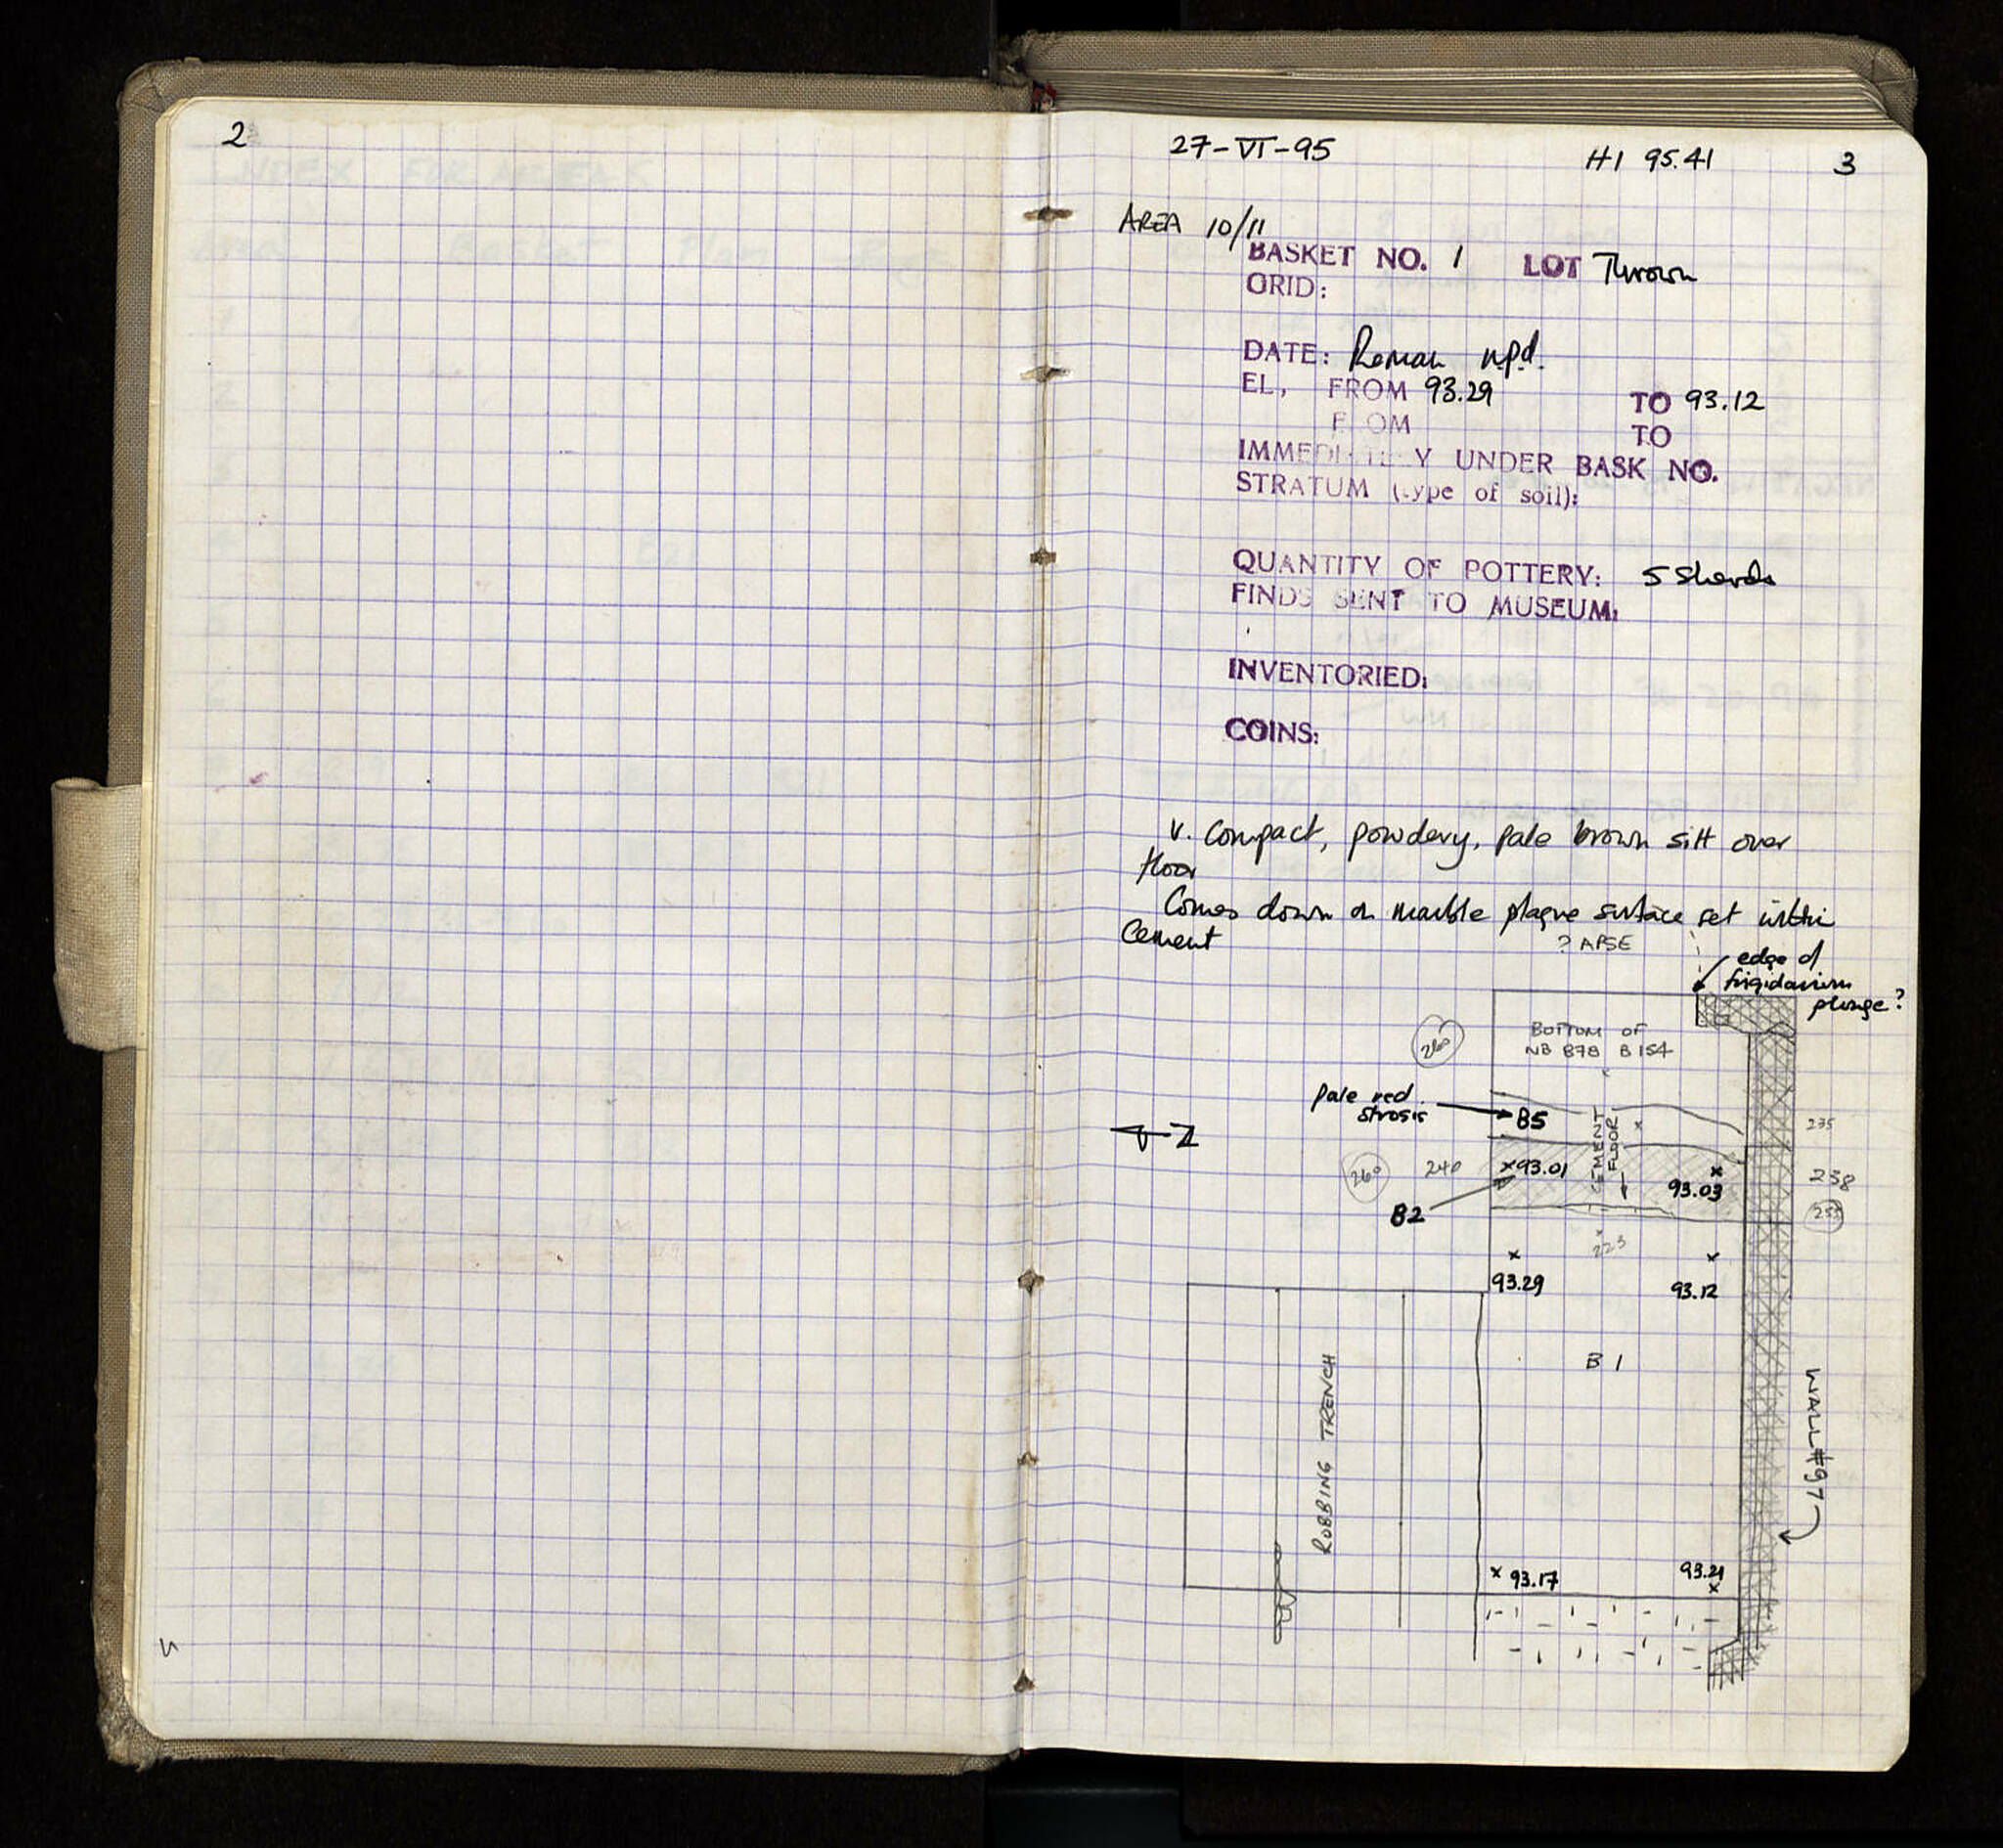 2
27-VI-95
H1 95.41
3
AREA 10/11
BASKET NO. 1 LOT Thrown
GRID:
DATE: Roman npd.
EL, FROM 93.29 TO 93.12
F OM TO
IMMEDI Y UNDER BASK NO.
STRATUM (type of soil):
QUANTITY OF POTTERY: 5 Sherds
FINDS SENT TO MUSEUM:
INVENTORIED:
COINS:
v. compact, powdery, pale brown silt over
floor
Comes down on marble plaque surface set within
Cement
? APSE
edge of
frigidarium
plunge?
260
BOTTOM OF
NB 878 B154
pale red
strosis
B5
CEMENT
FLOOR
235
260
240
x93.01
x
93.03
238
255
B2
N
223
x
93.29
x
93.12
ROBBING TRENCH
B 1
WALL #97
x 93.17
93.21
x